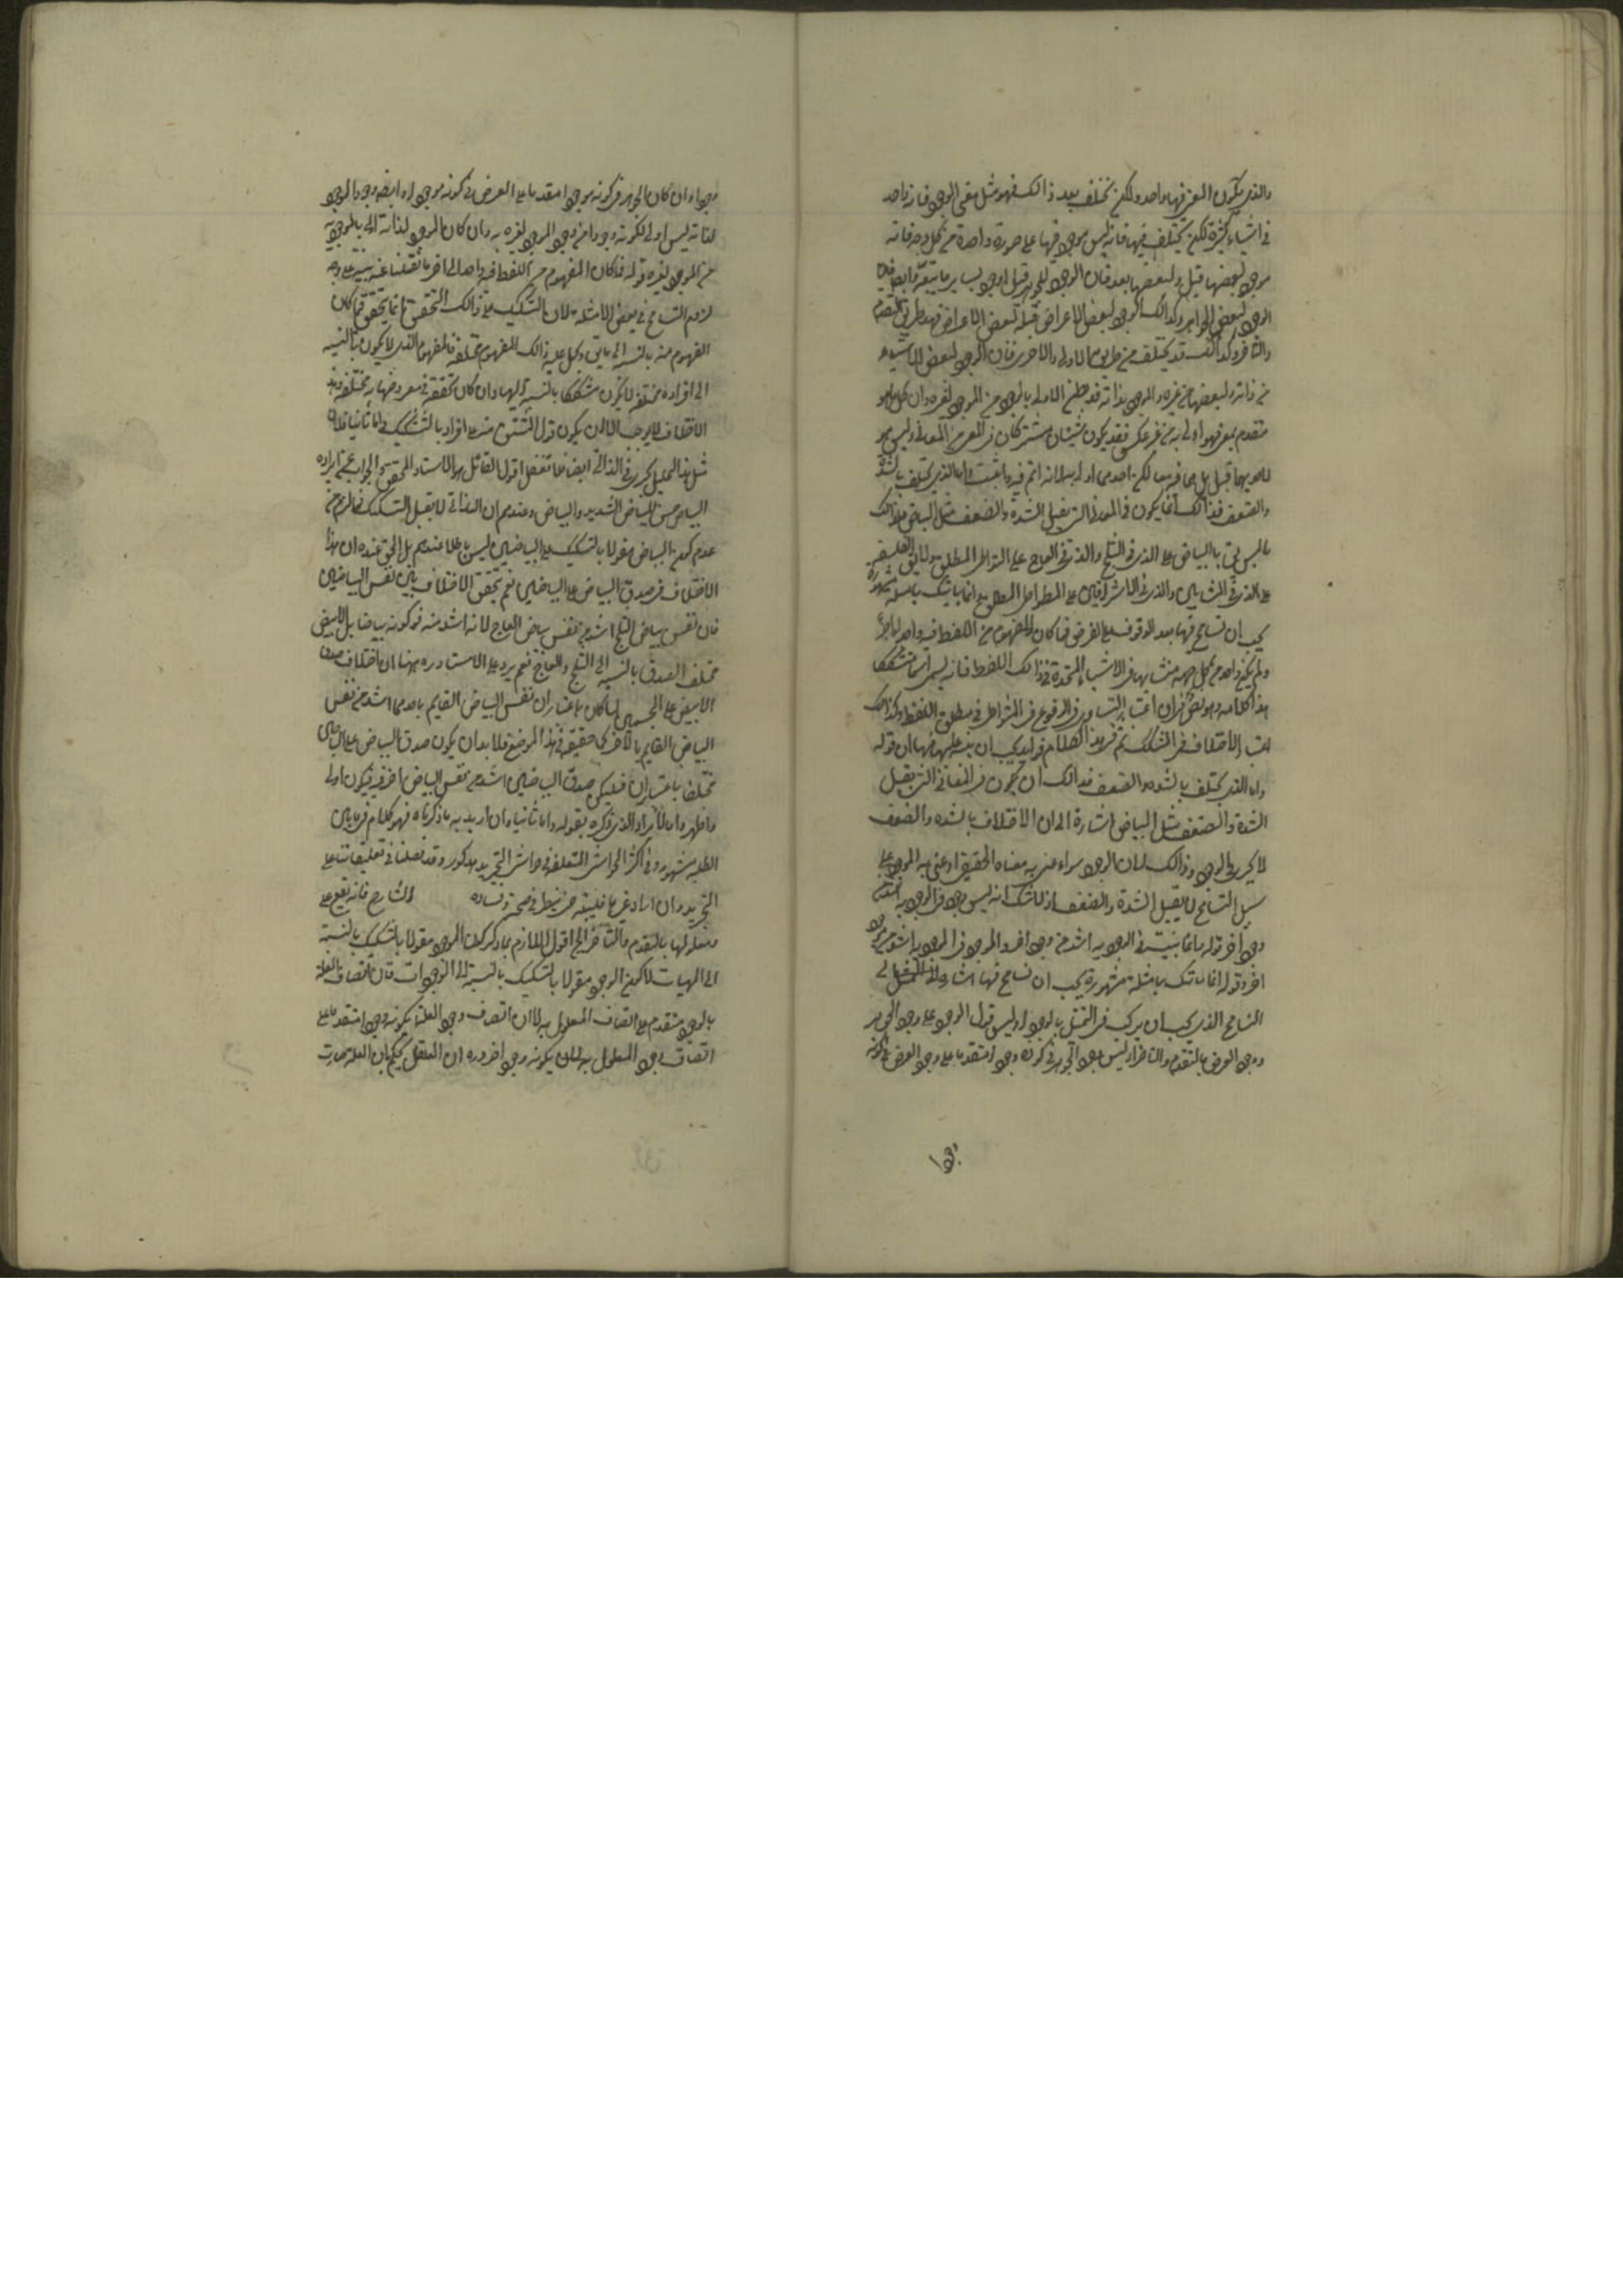 والذي يكون المعنى فيها واحد ولكن يختلف بعد ذالك فهو مثل معنى الوجود فانه واحد
في اشياء كثيرة لكن يختلف فيها فانه ليس موجود فيها على صورة واحدة من كل وجه فانه
موجود لبعضها قبل ولبعضها بعد فان الوجود للجوهر قبل الوجود لساير ما يتبعه وايضا فان
الوجود لبعض الجواهر وكذالك الوجود لبعض الاعراض قبله لبعض الاعراض فهذا طريق التقدم
والتاخر وكذالك قد يختلف من طريق الاولى والاحرى فان الوجود لبعض الاشياء
من ذاته ولبعضها من غيره والموجود بذاته اولى بالوجود من الموجود لغيره وان كل ما هو
متقدم بمعنى فهو اولى به من غير عكس فقد يكون شيئان مشتركان في المعنى من المعاني وليس هو
لاحديهما قبل بل هما فيه معا لكن احدهما اولى به لانه اتم فيه واثبت واما الذي يختلف بالشدة
والضعف فذالك انما يكون في المعاني التي تقبل الشدة والضعف مثل البياض فلذالك
ما ليس يق البياض على الذي في الثلج والذي في العاج على التواطي المطلق ولا يق الفلسفة
على الذي في المشايين والذي في الاشراقيين على التواطي المطلق وانما ناتيك بامثلة مشهورة
يجب ان تسامح فيها بعد الوقوف على الغرض فما كان المفهوم من اللفظ فيه واحد اذا جرد
ولم يكن واحد من كل جهة متشابها في الاشياء المتحدة في ذالك اللفظ فانه يسمى اسما مشككا
هذا كلامه وهو نص في ان اعتبار التساوي في الوقوع في المتواطي في مطلق اللفظ وكذالك
اعتبار الاختلاف في المشكك ثم في هذا الكلام فوايد يجب ان ينبه عليها منها ان قوله
واما الذي يختلف بالشدة والضعف فذالك ان يكون في المعاني التي تقبل
الشدة والضعف مثل البياض اشارة الى ان الاختلاف بالشدة والضعف
لا يجري في الوجود وذالك لان الوجود سواء عنى به معناه الحقيقي او عنى به الموجود على
سبيل التسامح لا يقبل الشدة والضعف اذ لا شك انه ليس وجود في الوجود به اشد من
وجود اخر قوله انما يثبت في الوجود به اشد من وجود اخر والموجود في الموجود به اشد من موجود
اخر وقوله انما ناتيك بامثلة مشهورة يجب ان تسامح فيها اشارة الى
التسامح الذي يجب ان يرتكب في التمثيل بالوجود اذ ليس قول الوجود على وجود الجوهر
ووجود العرض بالتقدم والتاخر اذ ليس وجود الجوهر في كونه وجودا متقدما على وجود العرض في كونه
وجودا
وجودا وان كان الجوهر في كونه موجودا متقدما على العرض في كونه موجودا وايضا وجود الموجود
لذاته ليس اولى لكونه وجودا من وجود الموجود لغيره به وان كان الموجود لذاته اولى بالموجودية
من الموجود لغيره قوله فما كان المفهوم من اللفظ فيه واحد الى اخر ما نقلنا عنه ينبه على وجه
لزوم التسامح في بعض الامثلة لان بالتشكيك على ذالك التحقيق انما يتحقق فيما كان
المفهوم منه بالنسبة الى ما يق ويحمل عليه ذالك المفهوم مختلفة فالمفهوم الذي لا يكون بالنسبة
الى افراده مختلفة لا يكون مشككا بالنسبة اليها وان كان تحققه في معروضها به مختلفة وهذا
الاختلاف لا يوجب الا ان يكون قول المشتق منه على افراده بالتشكيك واما ثانيا فلان
مثل هذا التعليل يجري في الذاتي ايضا فلا تغفل اقول القائل هو الاستاد المحقق والجواب عن ايراده
البياض جنس للبياض الشديد والبياض وعندهم ان الذاتي لا يقبل التشكيك فما لزم من
عدم كون البياض مقولا بالتشكيك على البياضين ليس باطلا عندهم بل الحق عنده ان هذا
الاختلاف في صدق البياض على البياضين نعم تحقق الاختلاف بين نفس البياضين
فان نفس بياض الثلج اشد من نفس بياض العاج لانه اشد منه في كونه بياضا بل الابيض
مختلف الصدق بالنسبة الى الثلج والعاج نعم يرد على الاستاد ره ههنا ان اختلاف صدق
الابيض على الجسمين لما كان باعتبار ان نفس البياض القايم باحدهما اشد من نفس
البياض القايم بالاخر كما حققه في هذا الموضع فلا بد ان يكون صدق البياض على البياضين
مختلفا باعتبار ان فليكن صدق البياضين اشد من نفس البياض اخر فيكون اولى
واظهر واما الايراد الذي ذكره بقوله واما ثانيا وان اريد به ما ذكرناه فهو كلام فيما بين
الطلبه مشهور وفي اكثر الحواشي المتعلقه بحواشي التجريد مذكور وقد نقلنا في تعليقاتنا على
التجريد وان اراد غيرها فليبينه حتى ينظر في صحته وفساده الشارح فانه يقع على
ومعلولها بالتقدم والتاخر الخ اقول اللازم مما ذكر كون الموجود مقولا بالتشكيك بالنسبة
الى المهيات لا كون الوجود مقولا بالتشكيك بالنسبة الى الوجودات فان اتصاف العلة
بالوجود متقدم على اتصاف المعلول به لا ان اتصاف وجود العلة بكونه وجودا متقدما على
اتصاف وجود المعلول به لان يكونه وجودا ضرورة ان العقل يحكم بان العلة صارت